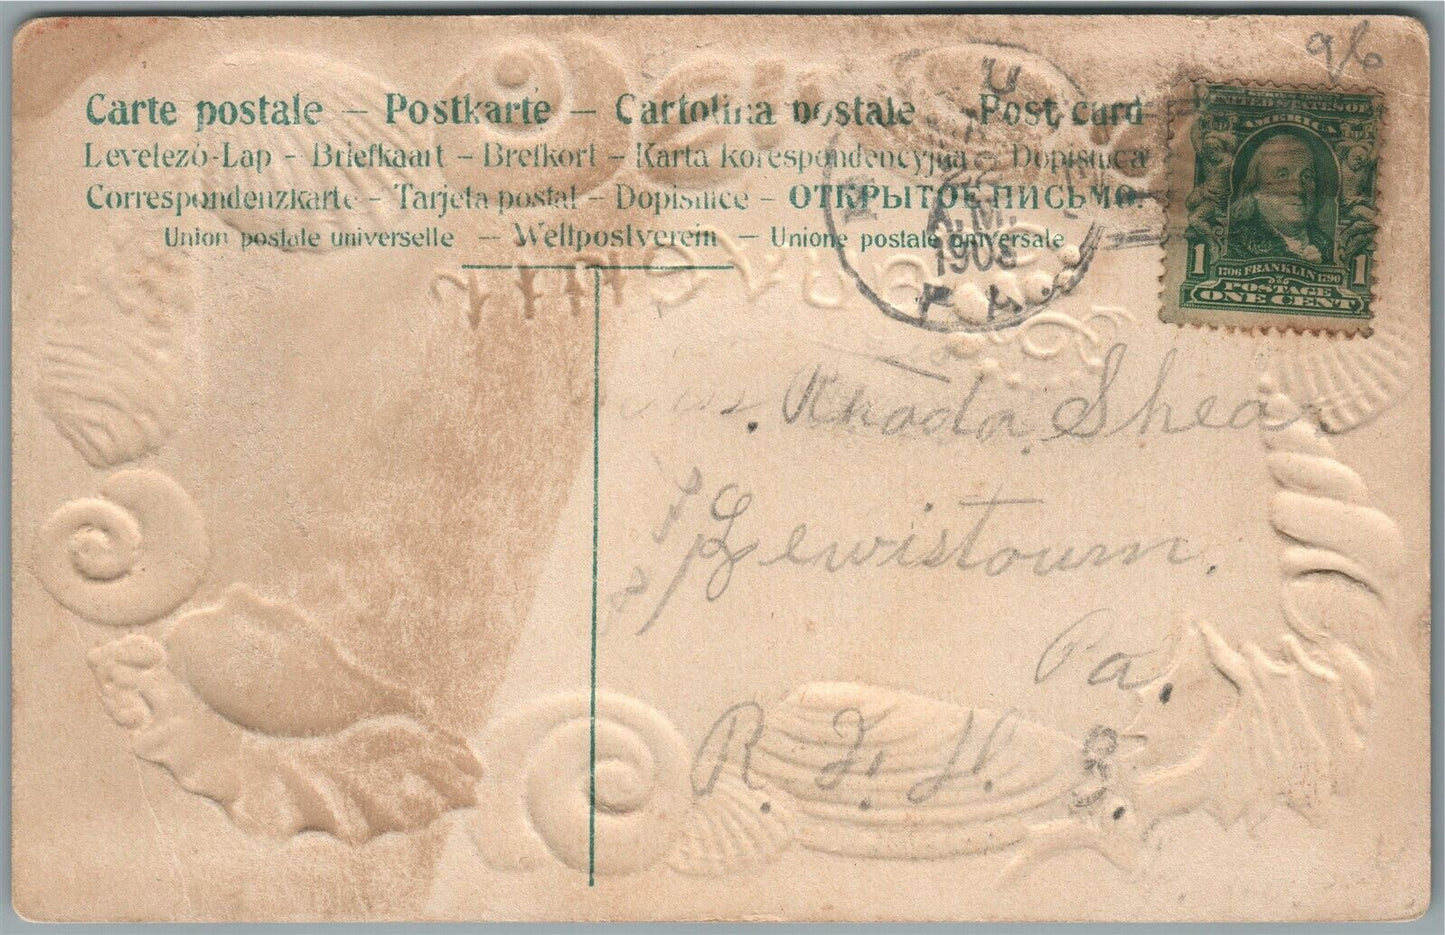 9/6
Carte postale – Postkarte – Cartolina postale – Post card
Levelező-Lap – Briefkaart – Brefkort – Karta korespondencyjna – Dopisnica
Correspondenzkarte – Tarjeta postal – Dopisnice – ОТКРЫТОЕ ПИСЬМО.
Union postale universelle — Weltpostverein — Unione postale universale
A.M.
1908
PA.
UNITED STATES OF
AMERICA
1 1706 FRANKLIN 1790 1
POSTAGE
ONE CENT
Rhoda Shear
Lewistown.
Pa.
R. F. D.